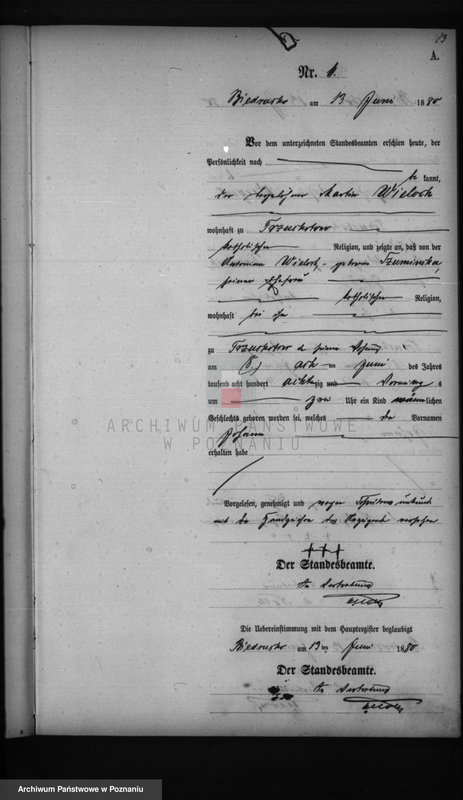 13
A.
Nr. 1.
Biedrusko am 13 Juni 1880
Vor dem unterzeichneten Standesbeamten erschien heute, der
Persönlichkeit nach
be kannt,
der Tagelöhner Martin Wieloch
wohnhaft zu
katholischer Religion, und zeigte an, daß von der
Antonina Wieloch geborene
seiner Ehefrau
katholischer Religion,
wohnhaft bei ihm
zu in seiner Wohnung
am acht ten Juni des Jahres
tausend acht hundert achtzig und Vormittags
um zwei Uhr ein Kind männlichen
Geschlechts geboren worden sei, welches den Vornamen
Johann
erhalten habe
Vorgelesen, genehmigt und wegen Schreibens unkunde
mit dem Handzeichen des Anzeigenden versehen
+++
Der Standesbeamte.
In Vertretung
Die Uebereinstimmung mit dem Hauptregister beglaubigt
Biedrusko am 13 ten Juni 1880
Der Standesbeamte.
In Vertretung
ARCHIWUM PAŃSTWOWE
W POZNANIU
Archiwum Państwowe w Poznaniu